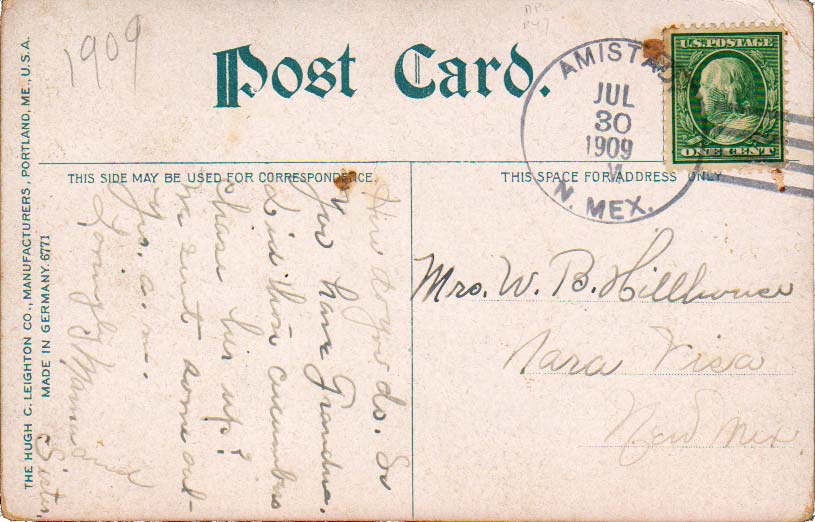 1909
Post Card.
AMISTAD
JUL
30
1909
N. MEX.
U.S. POSTAGE
ONE CENT
THIS SIDE MAY BE USED FOR CORRESPONDENCE
THIS SPACE FOR ADDRESS ONLY
THE HUGH C. LEIGHTON CO., MANUFACTURERS, PORTLAND, ME., U.S.A.
MADE IN GERMANY. 6771
How do you do. So
you have Grandma.
Did them cucumbers
chase her up?
We sent some out
Yrs. a.m.
Lovingly Mama and
Sister,
Mrs. W. B. Hillhouse
Nara Visa
New Mex.